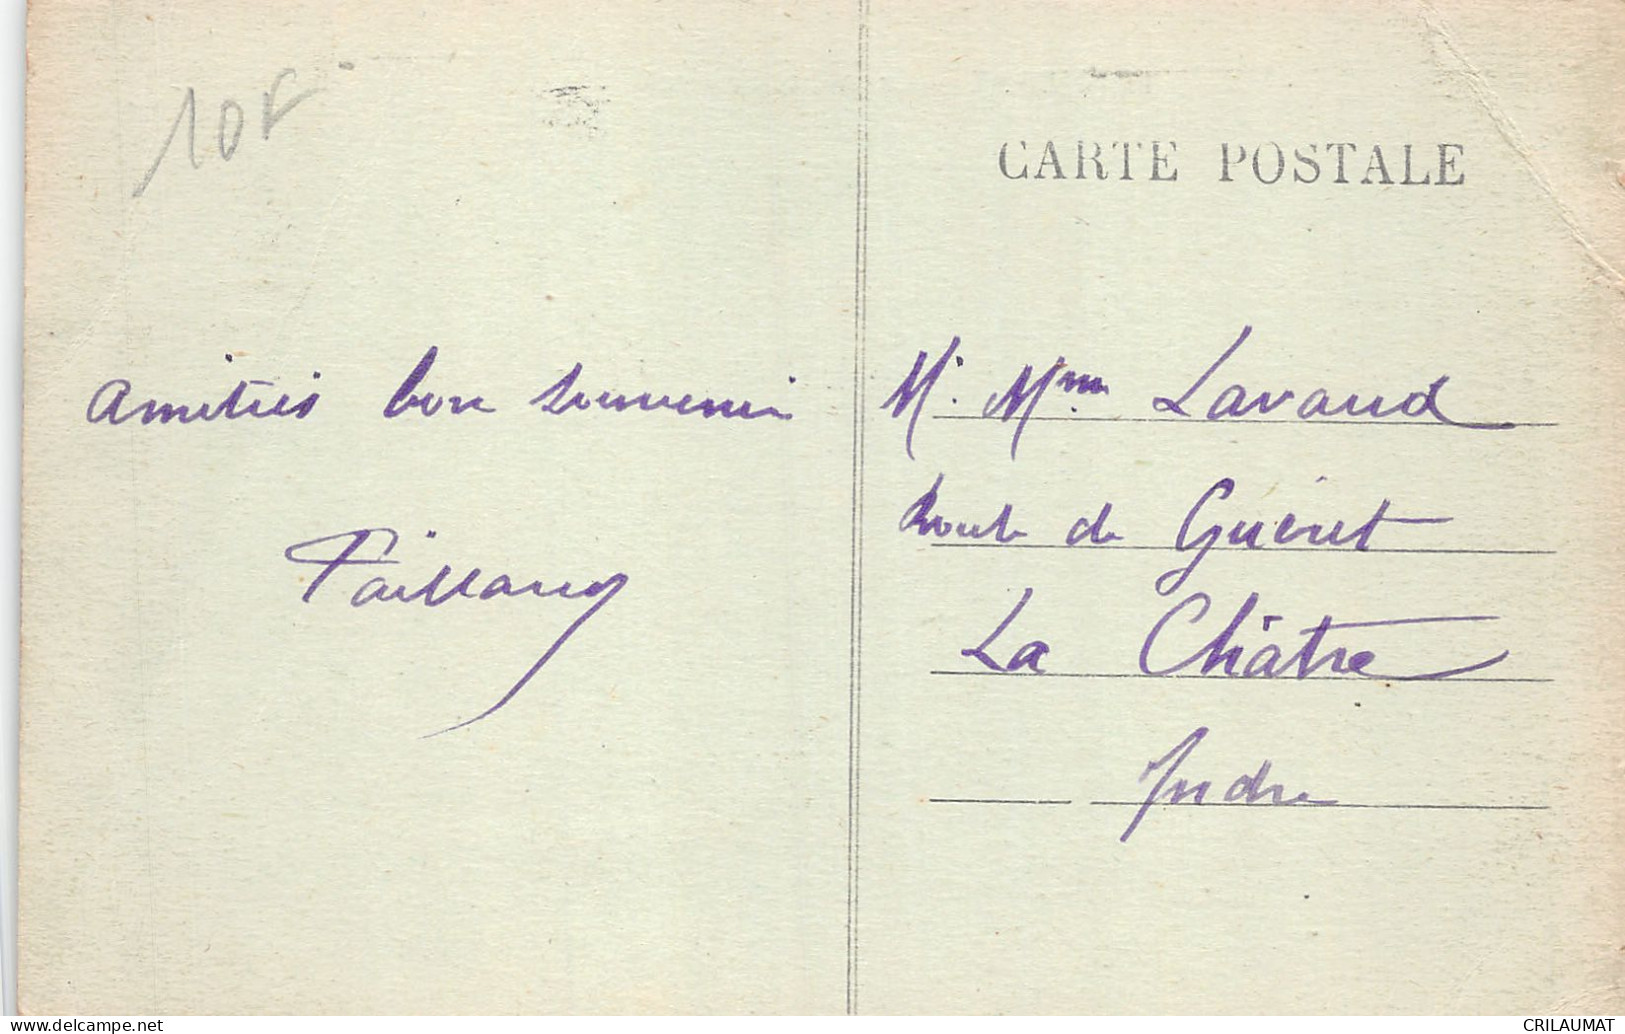 10F
CARTE POSTALE
Amitiés bon souvenir
M. Mme Lavaud
Route de Guéret
La Châtre
Indre
www.delcampe.net
CRILAUMAT